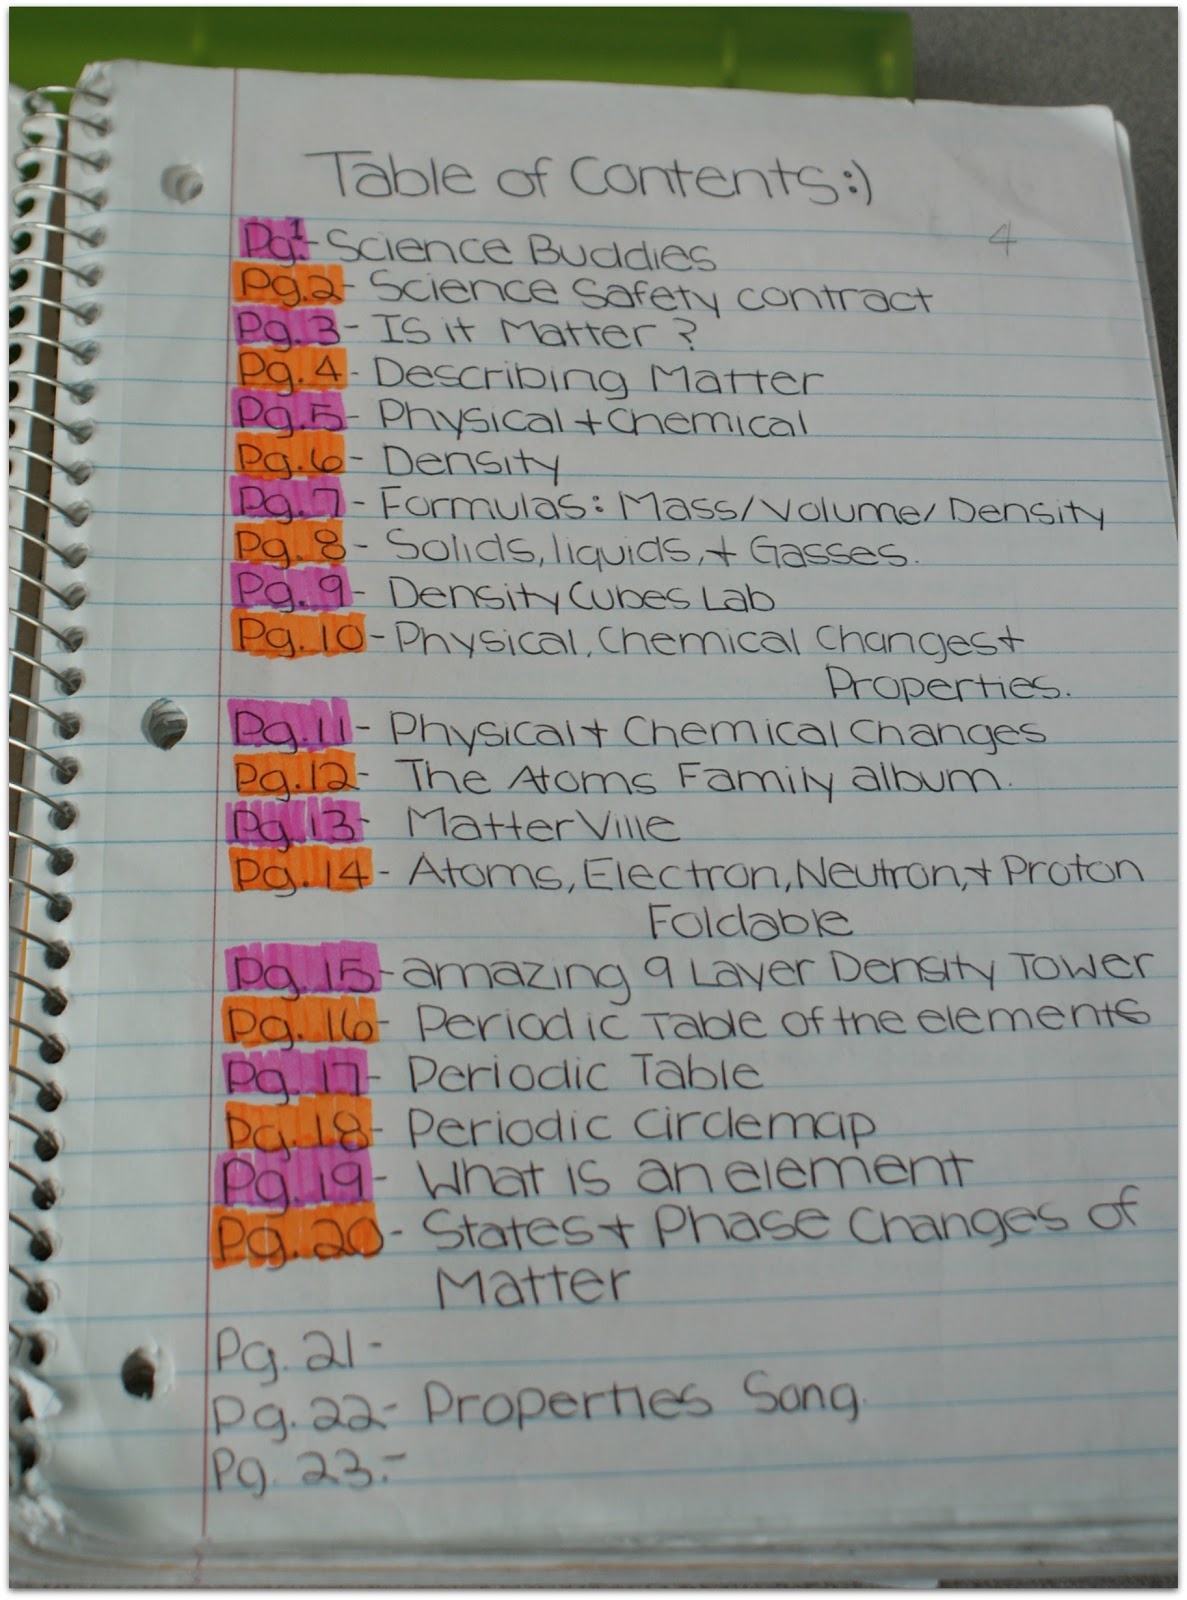 Table of Contents:)
4
Pg.1- Science Buddies
Pg.2- Science Safety contract
Pg.3- Is it Matter?
Pg.4- Describing Matter
Pg.5- Physical + Chemical
Pg.6- Density
Pg.7- Formulas: Mass/Volume/Density
Pg.8- Solids, liquids, + Gasses.
Pg.9- Density Cubes Lab
Pg.10- Physical, Chemical Changes +
Properties.
Pg.11- Physical + Chemical Changes
Pg.12- The Atoms Family album.
Pg.13- Matter Ville
Pg.14- Atoms, Electron, Neutron, + Proton
Foldable
Pg.15- amazing 9 Layer Density Tower
Pg.16- Periodic Table of the elements
Pg.17- Periodic Table
Pg.18- Periodic Circlemap
Pg.19- What is an element
Pg.20- States + Phase Changes of
Matter
Pg.21-
Pg.22- Properties Song.
Pg.23.-